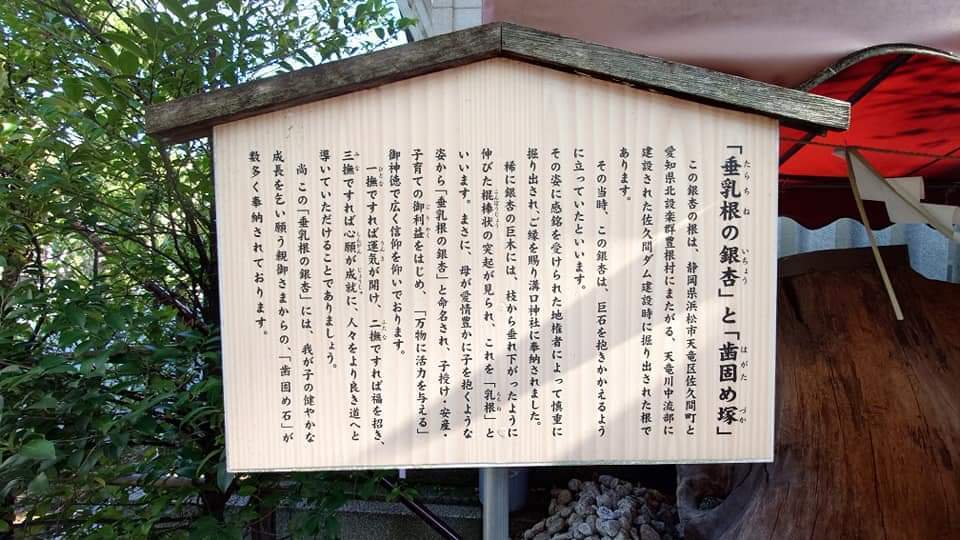 「垂乳根の銀杏」と「歯固め塚」
この銀杏の根は、静岡県浜松市天竜区佐久間町と
愛知県北設楽郡豊根村にまたがる、天竜川中流部に
建設された佐久間ダム建設時に掘り出された根で
あります。
その当時、この銀杏は、巨石を抱きかかえるよう
に立っていたといいます。
その姿に感銘を受けられた地権者によって慎重に
掘り出され、ご縁を賜り溝口神社に奉納されました。
稀に銀杏の巨木には、枝から垂れ下がったように
伸びた棍棒状の突起が見られ、これを「乳根」と
いいます。まさに、母が愛情豊かに子を抱くような
姿から「垂乳根の銀杏」と命名され、子授け・安産・
子育ての御利益をはじめ、「万物に活力を与える」
御神徳で広く信仰を仰いでおります。
一撫ですれば運気が開け、二撫ですれば福を招き、
三撫ですれば心願が成就に、人々をより良き道へと
導いていただけることでありましょう。
尚この「垂乳根の銀杏」には、我が子の健やかな
成長を乞い願う親御さまからの、「歯固め石」が
数多く奉納されております。